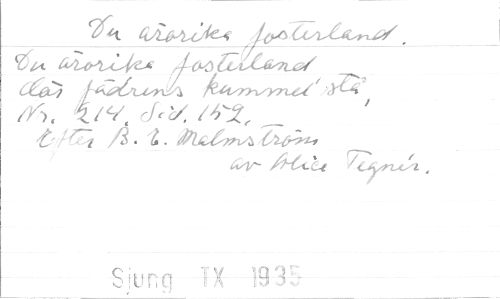 Du ärorika fosterland.
Du ärorika fosterland
där fädrens kummel stå,
Nr. 214. Sid. 152.
Efter B. E. Malmström
av Alice Tegnér.
Sjung TX 1935